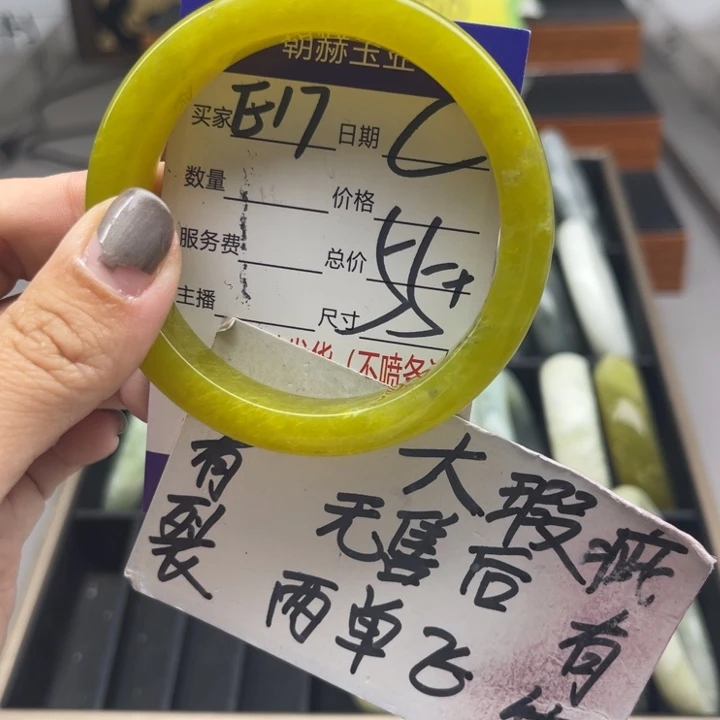 朝赫玉业
买家 E17 日期
数量 价格
服务费 总价
主播 尺寸 55+
发货（不喷备
有裂
大瑕疵
无售后 有
两单飞